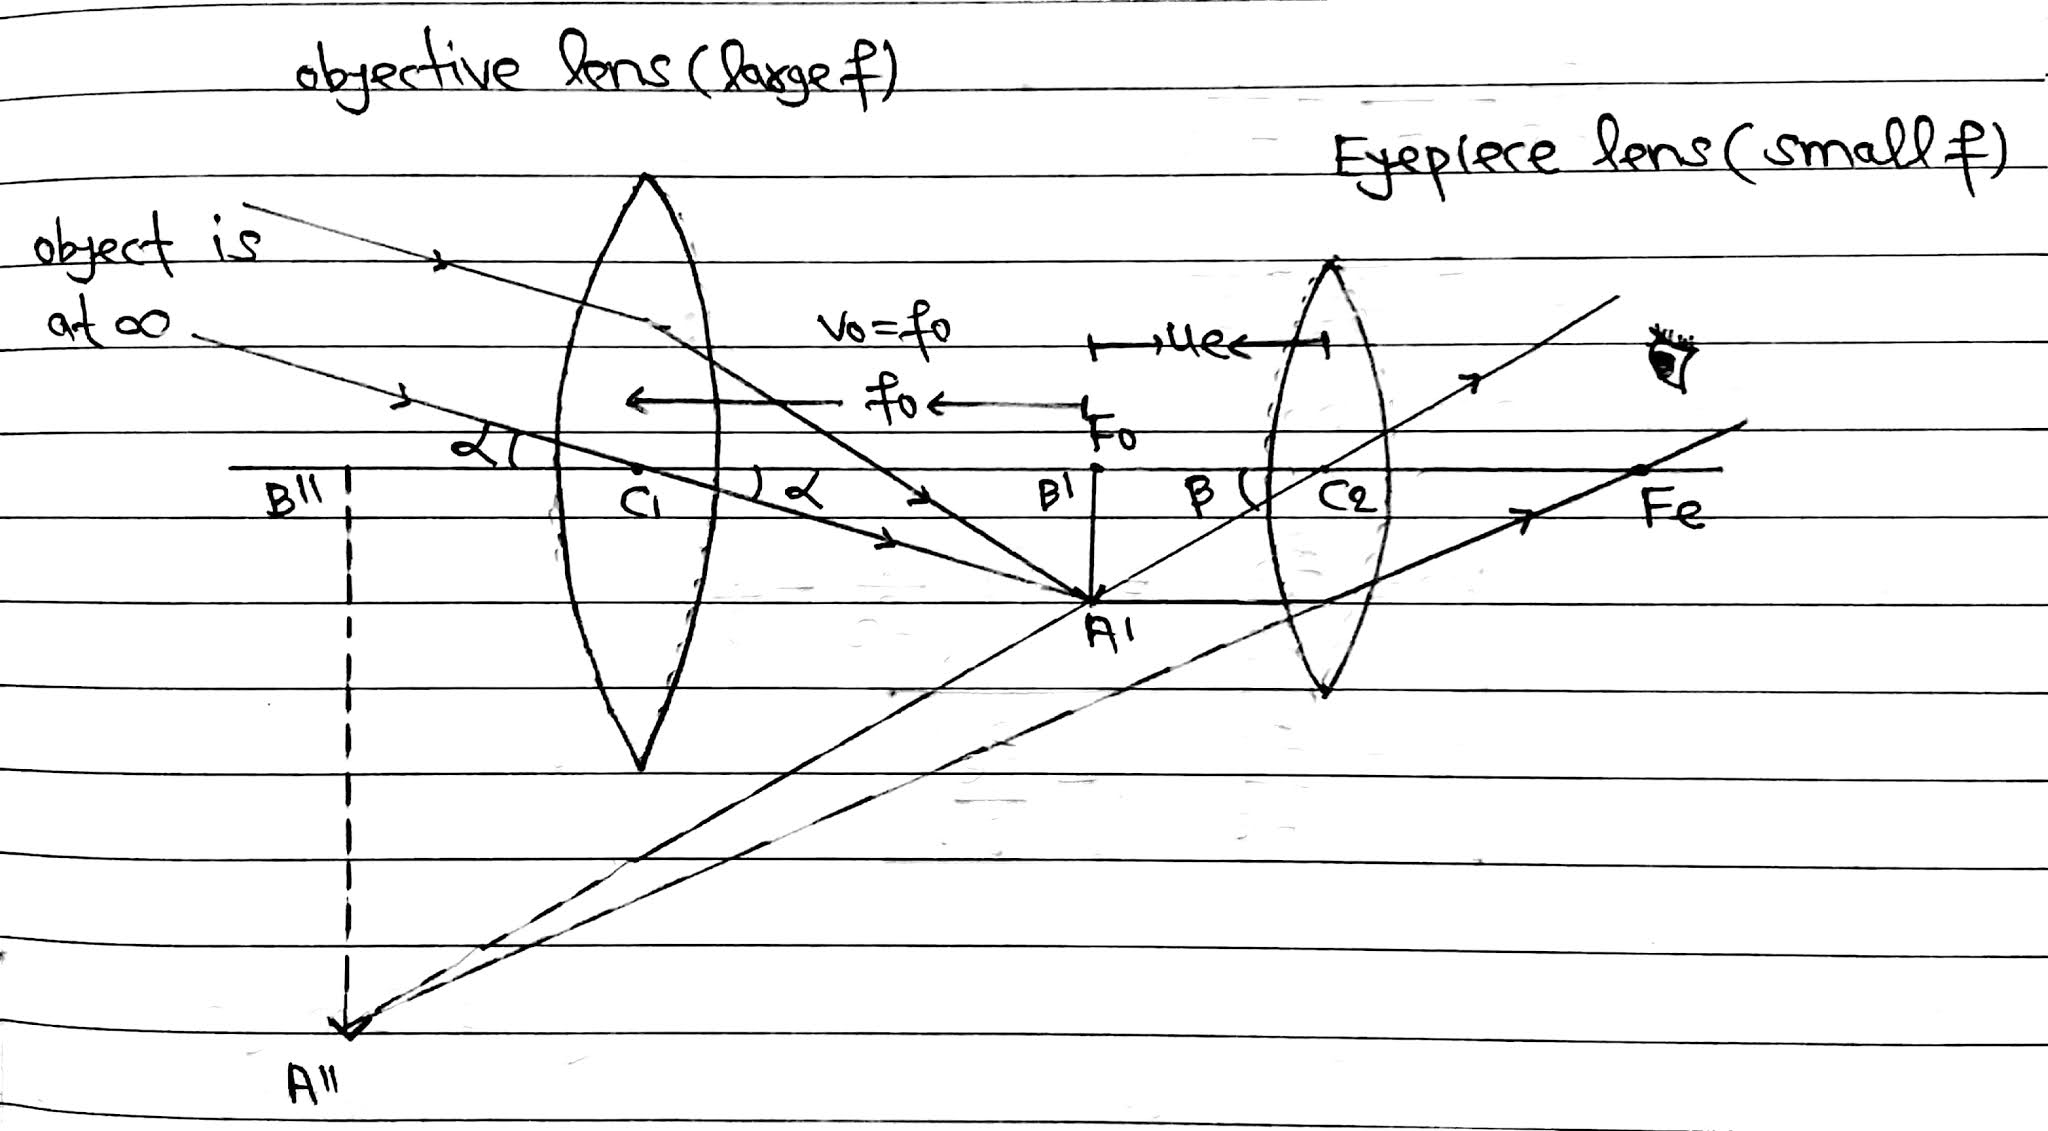 objective lens (large f)
Eyepiece lens (small f)
object is
at ∞
v₀ = f₀
ue
f₀
F₀
α
α
B''
C₁
B'
β
C₂
Fe
A'
A''